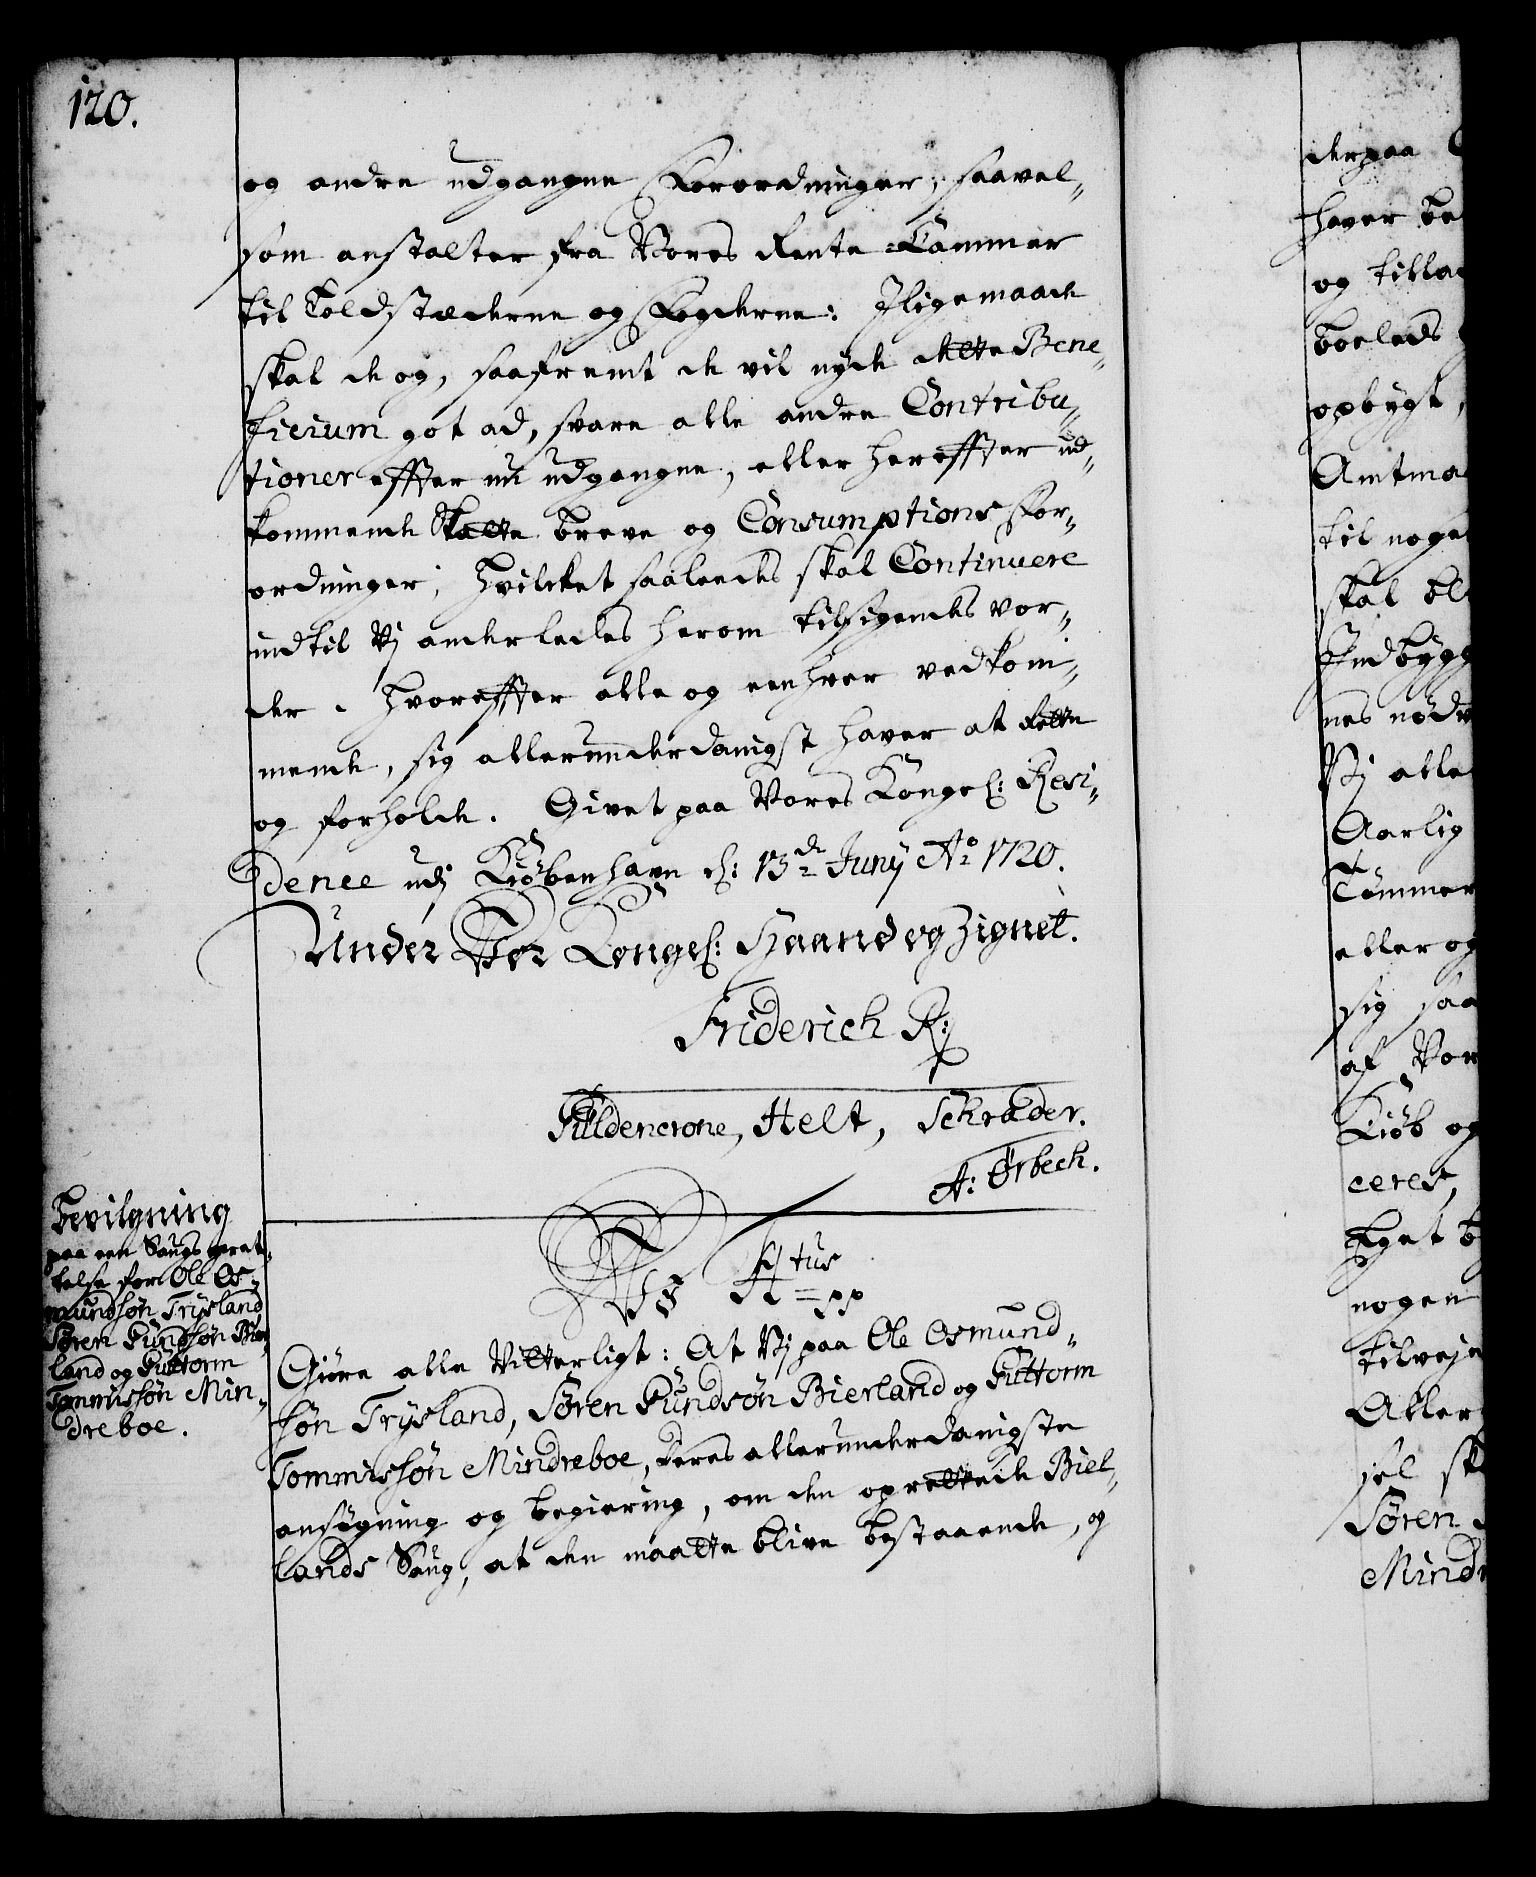 120.
og andre udgangne Forordninger, saavel-
som anstalter fra Vores Rente-Cammer
til Toldstæderne og Fogderne: Iligemaade
skal de og, saafremt de vil nyde dette Bene-
ficium got ad, svare alle andre Contribu-
tioner effter nu udgangne, eller hereffter ud-
kommende Skatte breve og Consumptions For-
ordninger; Hvilcket saaledes skal Continuere
indtil Vj anderledes herom tilsigendes vor-
der. Hvoreffter alle og eenhver vedkom-
mende, sig allerunderdanigst haver at Rette
og forholde. Givet paa Vores Kongel: Resi-
dence udj Kiøbenhavn d: 13de Junÿ Ao 1720.
Under Vor Kongel: Haand og Zignet.
Friderich R:
Güldencrone, Helt, Schrøder.
A: Ørbech.
Bevilgning
paa een Saugs opret-
telse for Ole Os-
mundsøn Trÿsland
Søren Gundsøn Bier-
land og Guttorm
Tommissøn Min-
dreboe.
Vj F 4tus
R = pp
Giøre alle Vitterligt: At Vj paa Ole Osmund-
søn Trÿsland, Søren Gundsøn Bierland og Guttorm
Tommissøn Mindreboe, deres allerunderdanigste
ansøgning og begiering, om den oprettede Biel-
lands Saug, at den maatte blive bestaaende, og
derpaa
haver be
og tillad
boeleds
opbygt,
Amtma
til noge
skal bl
Indbygg
nes nødv
Vj alle
Aarlig
Tømmer
eller og
sig saa
af Vor
Kiøb og
ceres,
Eget b
nogen
tilveje
Aller
sel sk
Søren
Mind